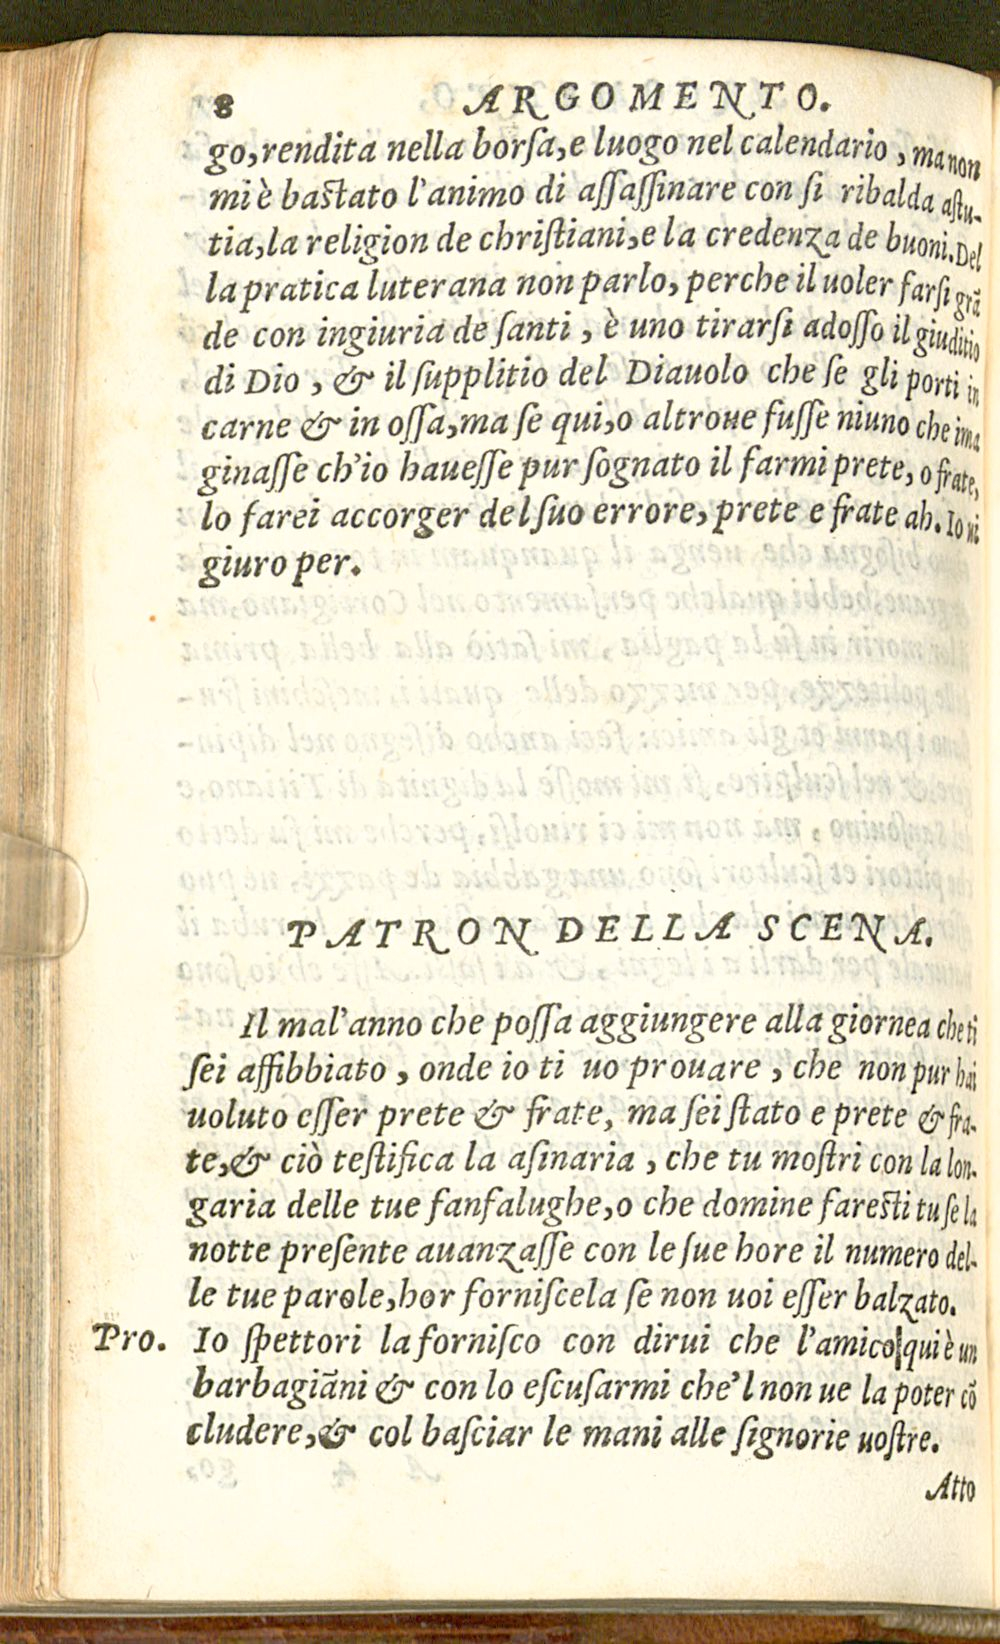 8 ARGOMENTO.
go,rendita nella borſa,e luogo nel calendario , ma non
mi è baſtato l'animo di aſſaſſinare con ſi ribalda aſtu-
tia,la religion de chriſtiani,e la credenza de buoni.Del
la pratica luterana non parlo, perche il uoler farſi grã
de con ingiuria de ſanti , è uno tirarſi adoſſo il giuditio
di Dio , & il ſupplitio del Diauolo che ſe gli porti in
carne & in oſſa,ma ſe qui,o altroue fuſſe niuno che ima
ginaſſe ch'io haueſſe pur ſognato il farmi prete, o frate,
lo farei accorger del ſuo errore, prete e frate ah. Io ui
giuro per.
PATRON DELLA SCENA.
Il mal'anno che poſſa aggiungere alla giornea che ti
ſei affibbiato , onde io ti uo prouare , che non pur hai
uoluto eſſer prete & frate, ma ſei ſtato e prete & fra-
te,& ciò teſtifica la aſinaria , che tu moſtri con la lon-
garia delle tue fanfalughe,o che domine fareſti tu ſe la
notte preſente auanzaſſe con le ſue hore il numero del-
le tue parole,hor forniſcela ſe non uoi eſſer balzato.
Pro. Io ſpettori la forniſco con dirui che l'amico qui è un
barbagiãni & con lo eſcuſarmi che'l non ue la poter cõ
cludere,& col baſciar le mani alle ſignorie uoſtre.
Atto